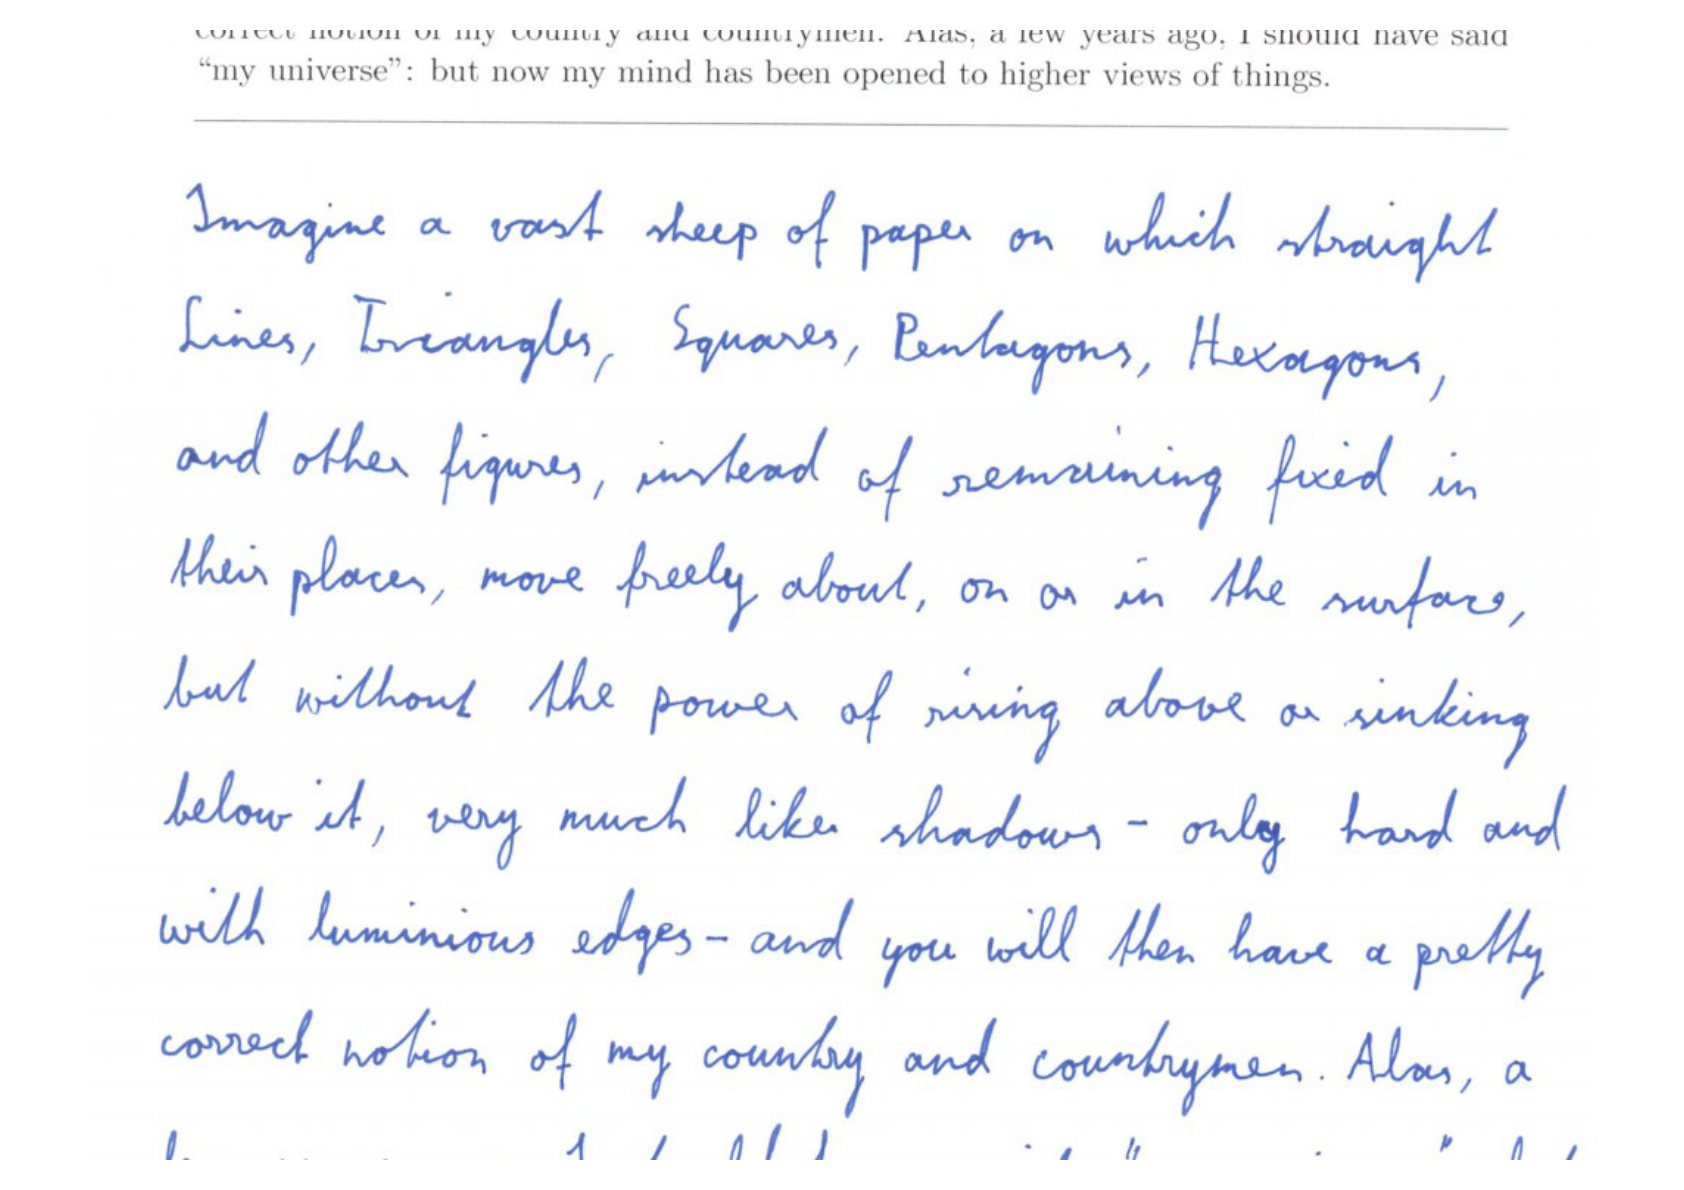 correct notion of my country and countrymen. Alas, a few years ago, I should have said
“my universe”: but now my mind has been opened to higher views of things.
Imagine a vast sheep of paper on which straight
Lines, Triangles, Squares, Pentagons, Hexagons,
and other figures, instead of remaining fixed in
their places, move freely about, on or in the surface,
but without the power of rising above or sinking
below it, very much like shadows - only hard and
with luminious edges - and you will then have a pretty
correct notion of my country and countrymen. Alas, a